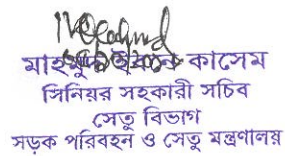 মাহমুদ ইবনে কাসেম
সিনিয়র সহকারী সচিব
সেতু বিভাগ
সড়ক পরিবহন ও সেতু মন্ত্রণালয়